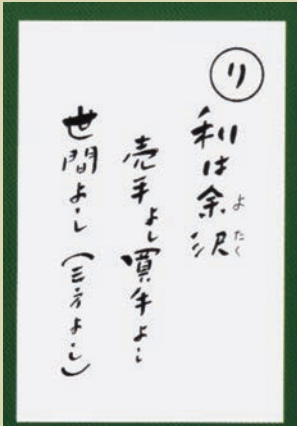 り
利は余沢
よたく
売手よし買手よし
世間よし（三方よし）